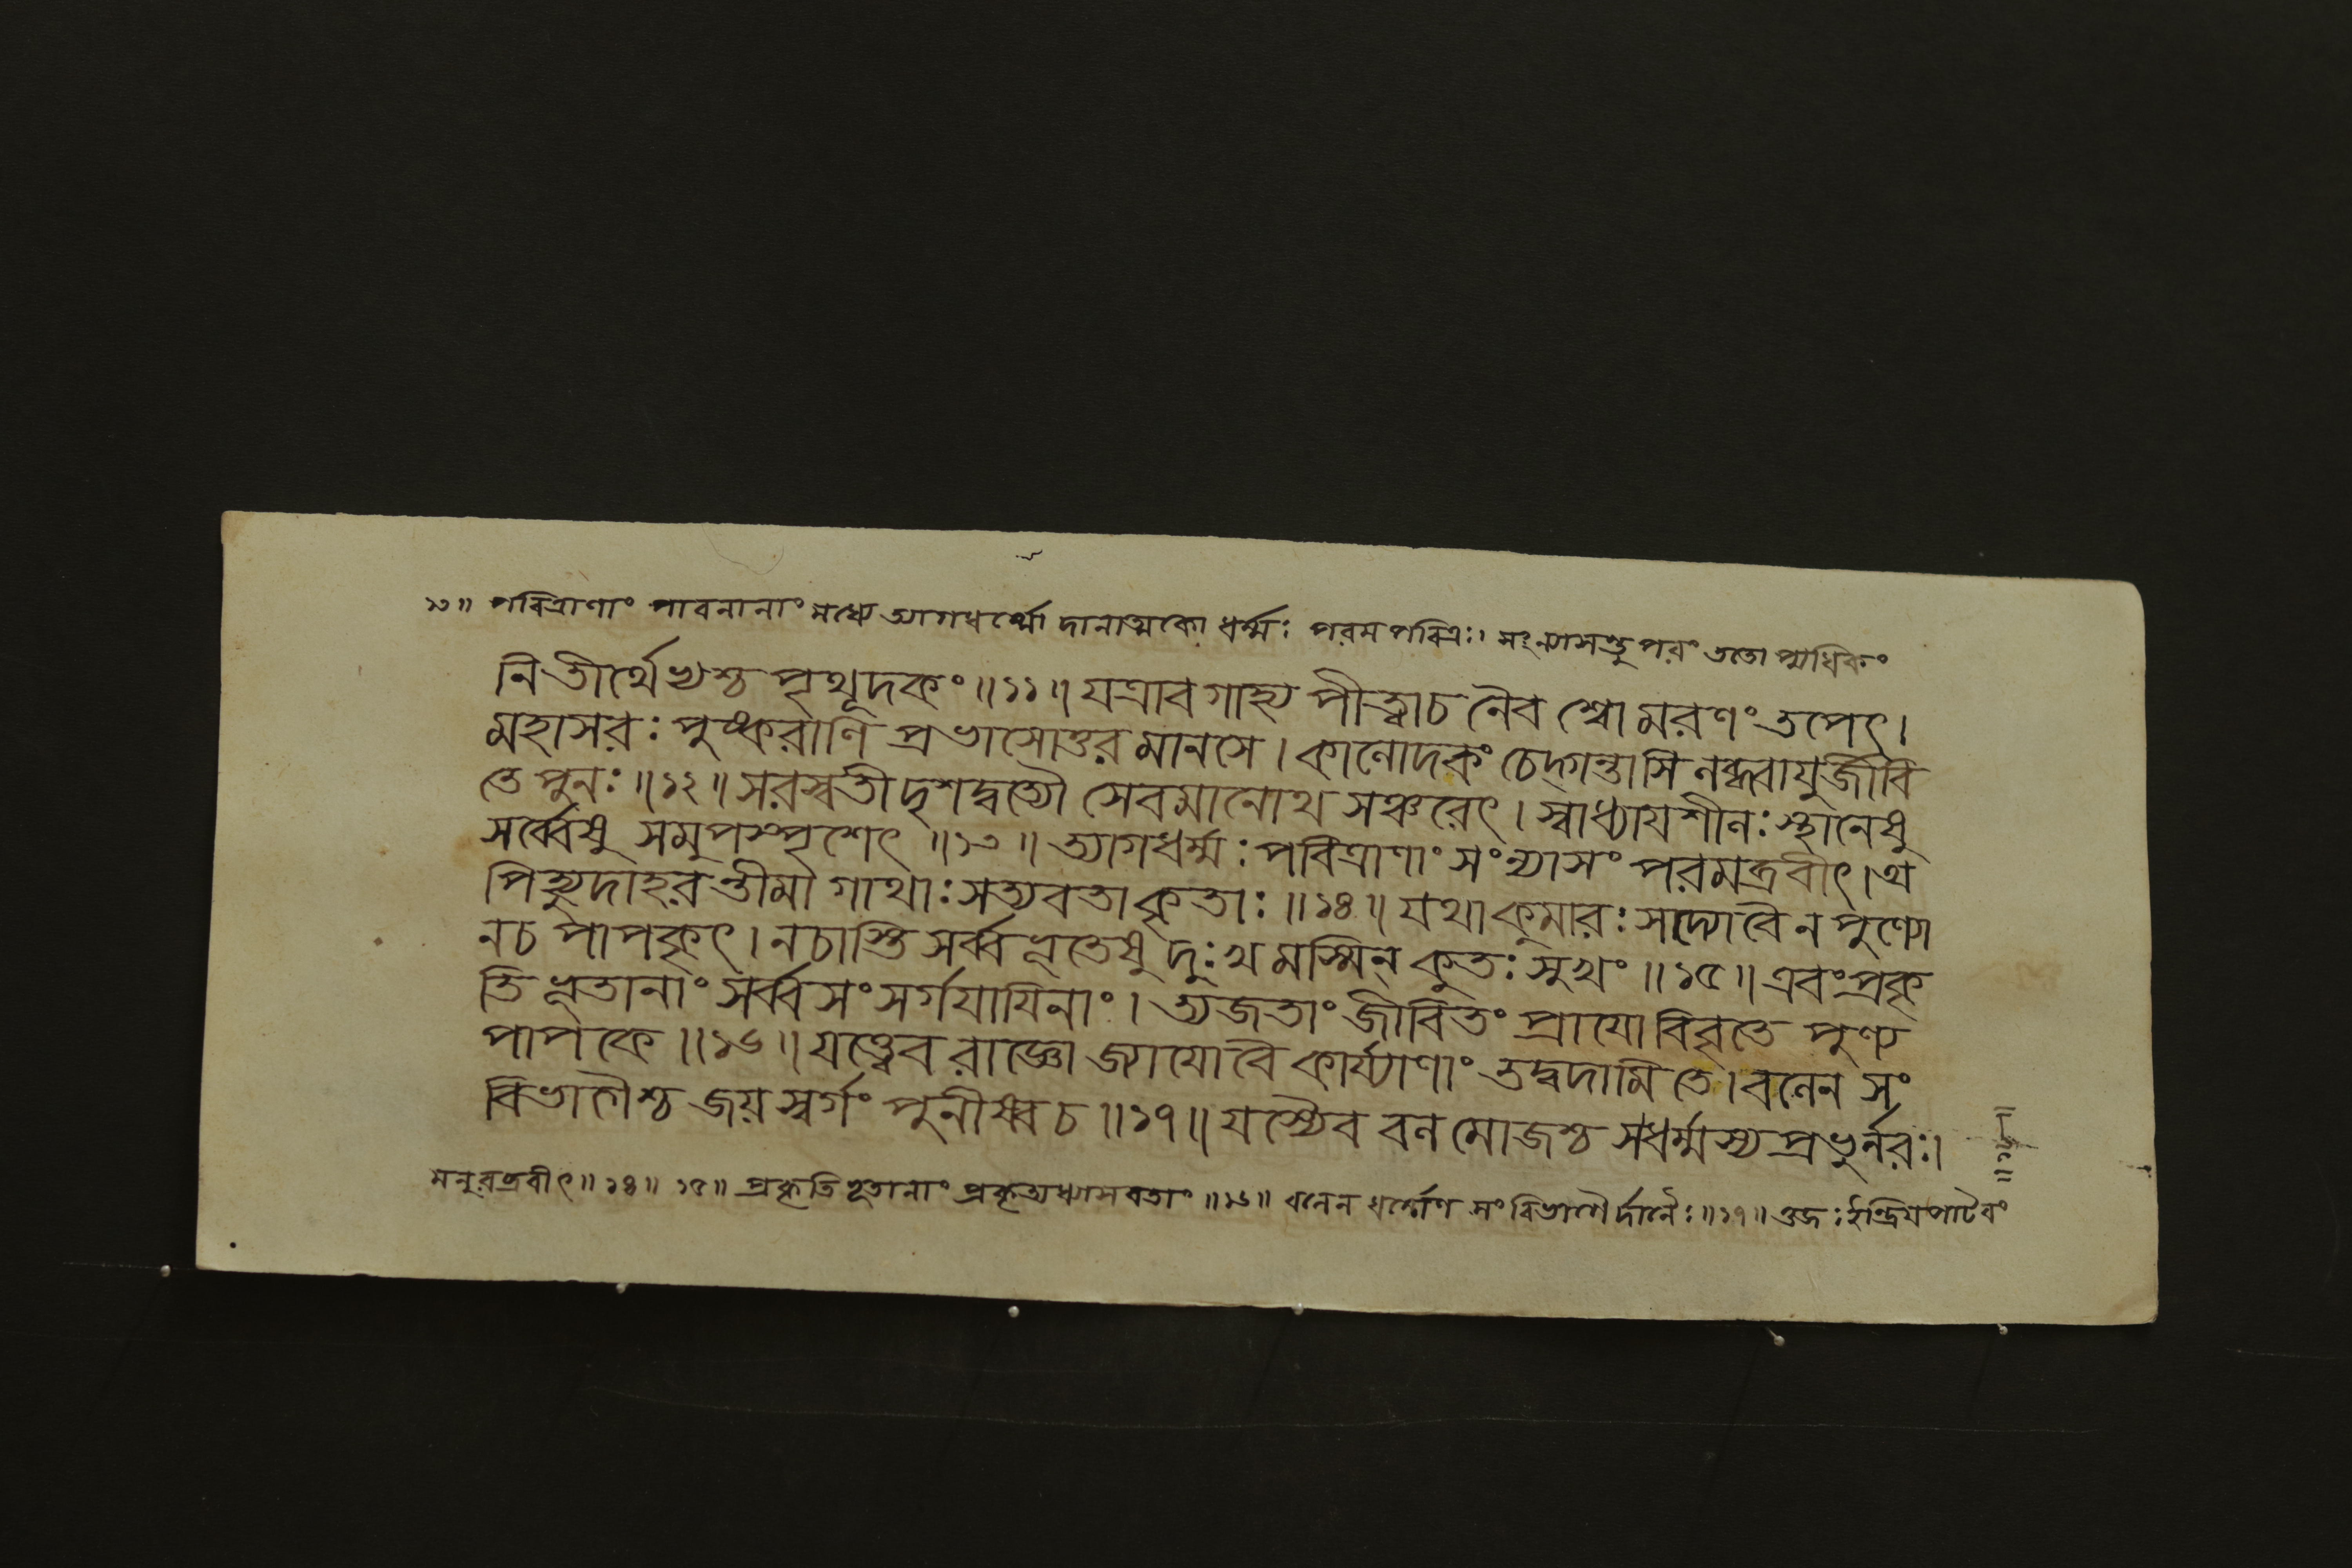 ১৩॥ পবিত্রাণাং পাবনানাং মধ্যে ত্যাগধর্ম্মো দানাত্মকো ধর্ম্মঃ পরমপবিত্রঃ। সংন্যাসস্তু পরং ততোপ্যধিকং
নি তীর্থেভ্যশ্চ পৃথূদকং ॥১১॥ যত্রাবগাহ্য পীত্বাচ নৈব শ্বোমরণং তপেৎ।
মহাসরঃ পুষ্করাণি প্রভাসোত্তরমানসে। কালোদকং চেদ্গন্তাসি লব্ধবায়ুর্জীবি
তে পুনঃ ॥১২॥ সরস্বতীদৃশদ্বত্যৌ সেবমানোথ সঞ্চরেৎ। স্বাধ্যায়শীলঃ স্থানেষু
সর্ব্বেষু সমুপস্পৃশেৎ ॥১৩॥ ত্যাগধর্ম্মঃ পবিত্রাণাং সংন্যাসং পরমব্রবীৎ। অ
পিহ্যুদাহরন্তীমা গাথাঃ সত্যবতাকৃতাঃ ॥১৪॥ যথাকুমারঃ সত্যোবৈ ন পুণ্যো
নচ পাপকৃৎ। নচাস্তি সর্ব্বভূতেষু দুঃখমস্মিন্ কুতঃ সুখং ॥১৫॥ এবংপ্রকৃ
তিভূতানাং সর্ব্বসংসর্গযায়িনাং। ত্যজতাং জীবিতং প্রায়ো বিবৃতে পুণ্য
পাপকে ॥১৬॥ যত্ত্বেব রাজ্ঞো জ্যায়োবৈ কার্য্যাণাং তদ্বদামি তে। বলেন সং
বিভাগৈশ্চ জয় স্বর্গং পুনীষ্বচ ॥১৭॥ যস্যৈব বলমোজশ্চ সধর্ম্মস্য প্রভুর্নরঃ।
মনুরব্রবীৎ॥১৪॥ ১৫॥ প্রকৃতিভূতানাং প্রকৃত্যধ্যাসবতাং ॥১৬॥ বলেন ধর্ম্মেণ সংবিভাগৈর্দানৈঃ॥১৭॥ ওজঃ ইন্দ্রিয়পাটবং